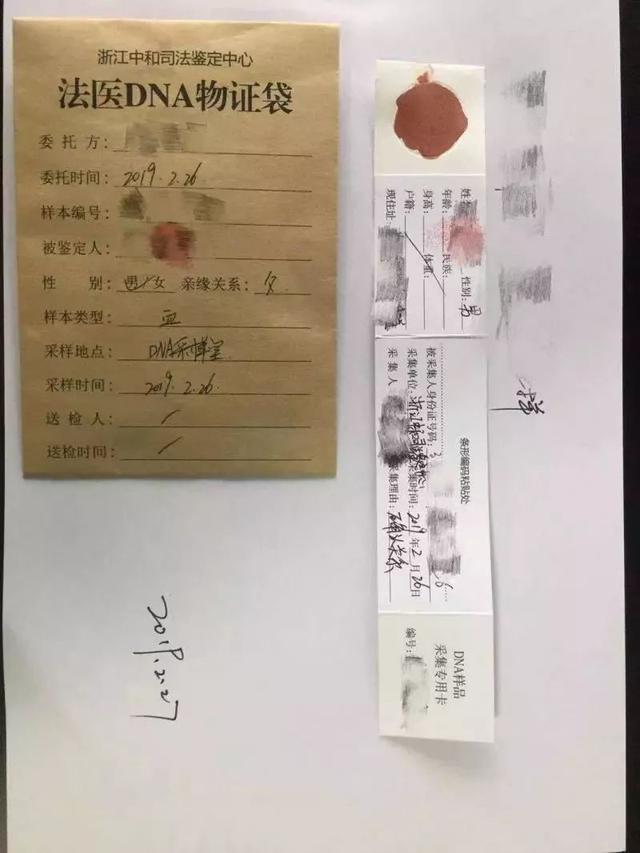 浙江中和司法鉴定中心
法医DNA物证袋
委 托 方：
委托时间：2019.2.26
样本编号：
被鉴定人：
性 别：男/女 亲缘关系：父
样本类型：血
采样地点：DNA采样室
采样时间：2019.2.26
送 检 人：/
送检时间：/
姓名 性别：男
年龄： 民族：
身高： 体重：
户籍：
现住址：
条形编码粘贴处
被采集人身份证号码：3 6
采集单位：浙江 采集时间：2019年2月26日
采 集 人 采集理由：确认关系
DNA样品
采集专用卡
编号：
2019.2.27